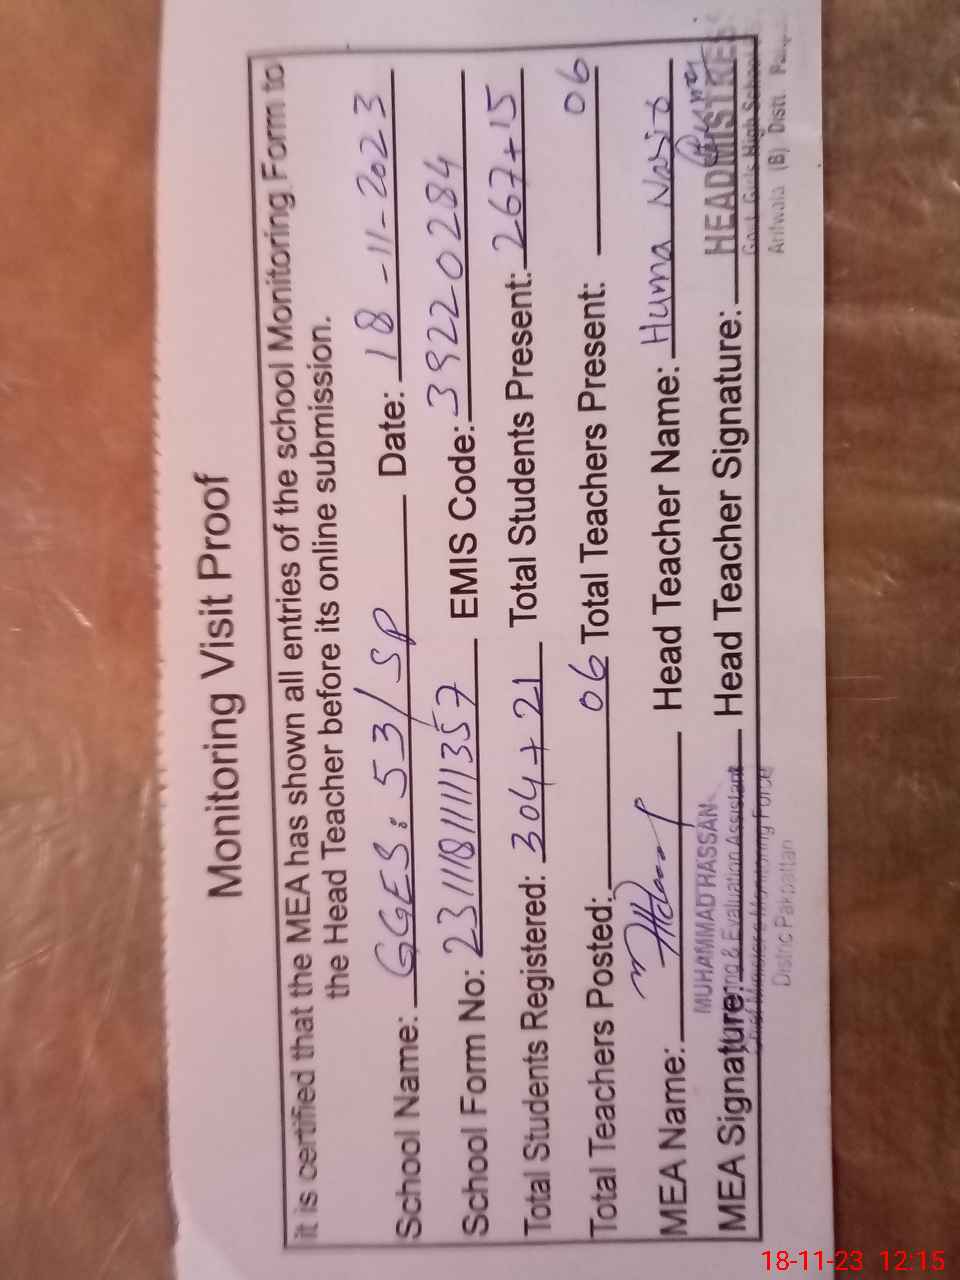 Monitoring Visit Proof
It is certified that the MEA has shown all entries of the school Monitoring Form to
the Head Teacher before its online submission.
School Name: GGES: 53/SP Date: 18-11-2023
School Form No: EMIS Code: 39220284
Total Students Registered: 304+21 Total Students Present: 267+15
Total Teachers Posted: 06 Total Teachers Present: 06
MEA Name: Head Teacher Name: Huma Nasir
MUHAMMAD HASSAN
MEA Signature: Head Teacher Signature: HEADMISTRESS
Monitoring & Evaluation Assistant Govt. Girls High School
Chief Minister's Monitoring Force Arifwala (B) Distt.
District Pakpattan
18-11-23 12:15